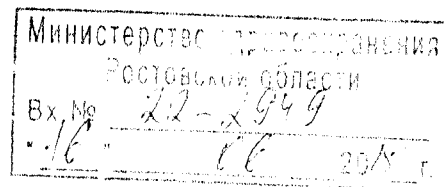 Министерство здравоохранения
Ростовской области
Вх. № 22-2949
"16" 20 г.